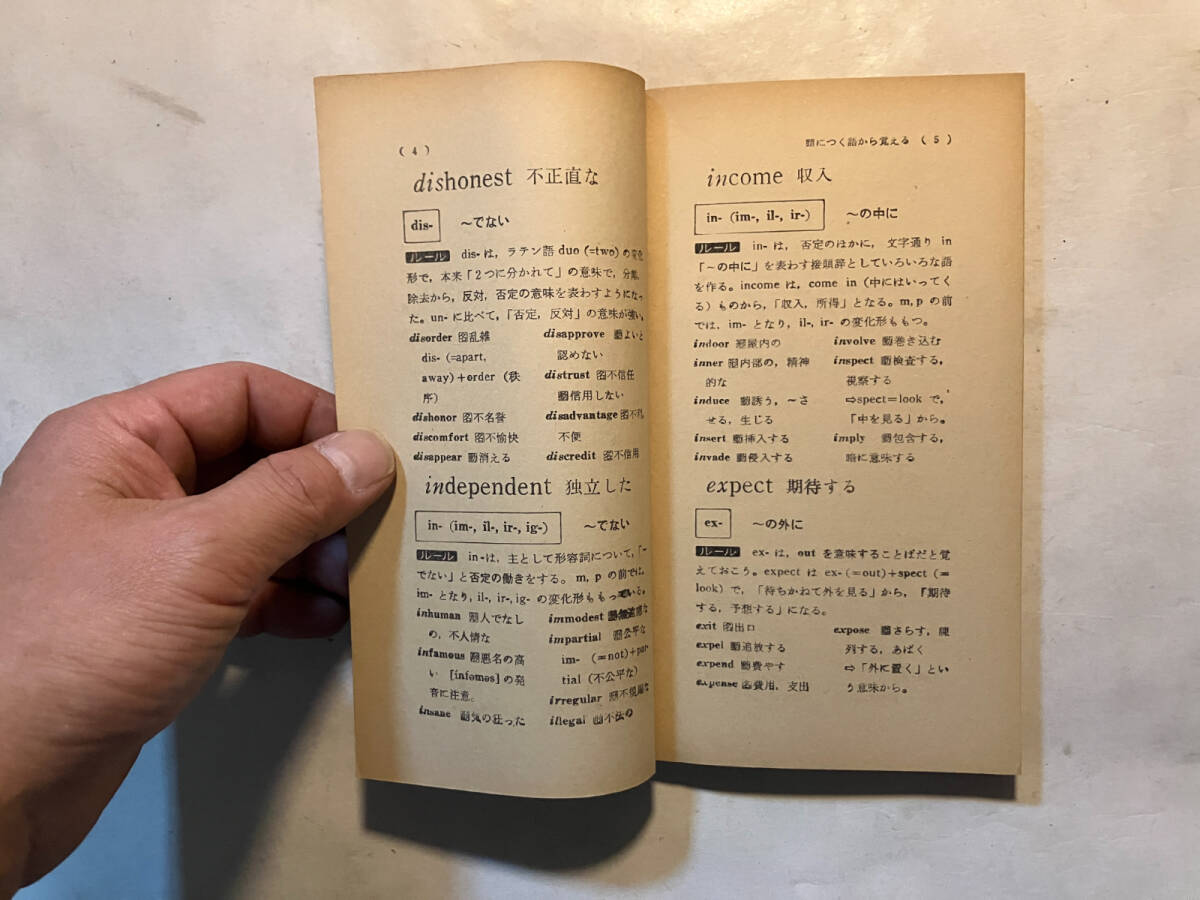 ( 4 )
dishonest 不正直な
dis- ～でない
ルール dis-は，ラテン語 duo (=two) の変化
形で，本来「2つに分かれて」の意味で，分離，
除去から，反対，否定の意味を表わすようになっ
た。un- に比べて，「否定，反対」の意味が強い。
disorder 名乱雑
dis- (=apart,
away)+order (秩
序)
dishonor 名不名誉
discomfort 名不愉快
disappear 動消える
disapprove 動よいと
認めない
distrust 名不信任
動信用しない
disadvantage 名不利，
不便
discredit 名不信用
independent 独立した
in- (im-, il-, ir-, ig-) ～でない
ルール in-は，主として形容詞について，「～
でない」と否定の働きをする。m, p の前では，
im- となり, il-, ir-, ig- の変化形ももっている。
inhuman 形人でなし
の，不人情な
infamous 形悪名の高
い [ínfəməs] の発
音に注意。
insane 形気の狂った
immodest
impartial 形公平な
im- (=not)+par-
tial (不公平な)
irregular 形不規則な
illegal 形不法の
頭につく語から覚える ( 5 )
income 収入
in- (im-, il-, ir-) ～の中に
ルール in- は，否定のほかに，文字通り in
「～の中に」を表わす接頭辞としていろいろな語
を作る。income は，come in (中にはいってく
る) ものから，「収入，所得」となる。m, p の前
では，im- となり，il-, ir- の変化形ももつ。
indoor 形屋内の
inner 形内部の，精神
的な
induce 動誘う，～さ
せる，生じる
insert 動挿入する
invade 動侵入する
involve 動巻き込む
inspect 動検査する，
視察する
⇨spect=look で，
「中を見る」から。
imply 動包含する，
暗に意味する
expect 期待する
ex- ～の外に
ルール ex- は，out を意味することばだと覚
えておこう。expect は ex- (=out)+spect (=
look) で，「待ちかねて外を見る」から，『期待
する，予想する』になる。
exit 名出口
expel 動追放する
expend 動費やす
expense 名費用，支出
expose 動さらす，陳
列する，あばく
⇨「外に置く」とい
う意味から。